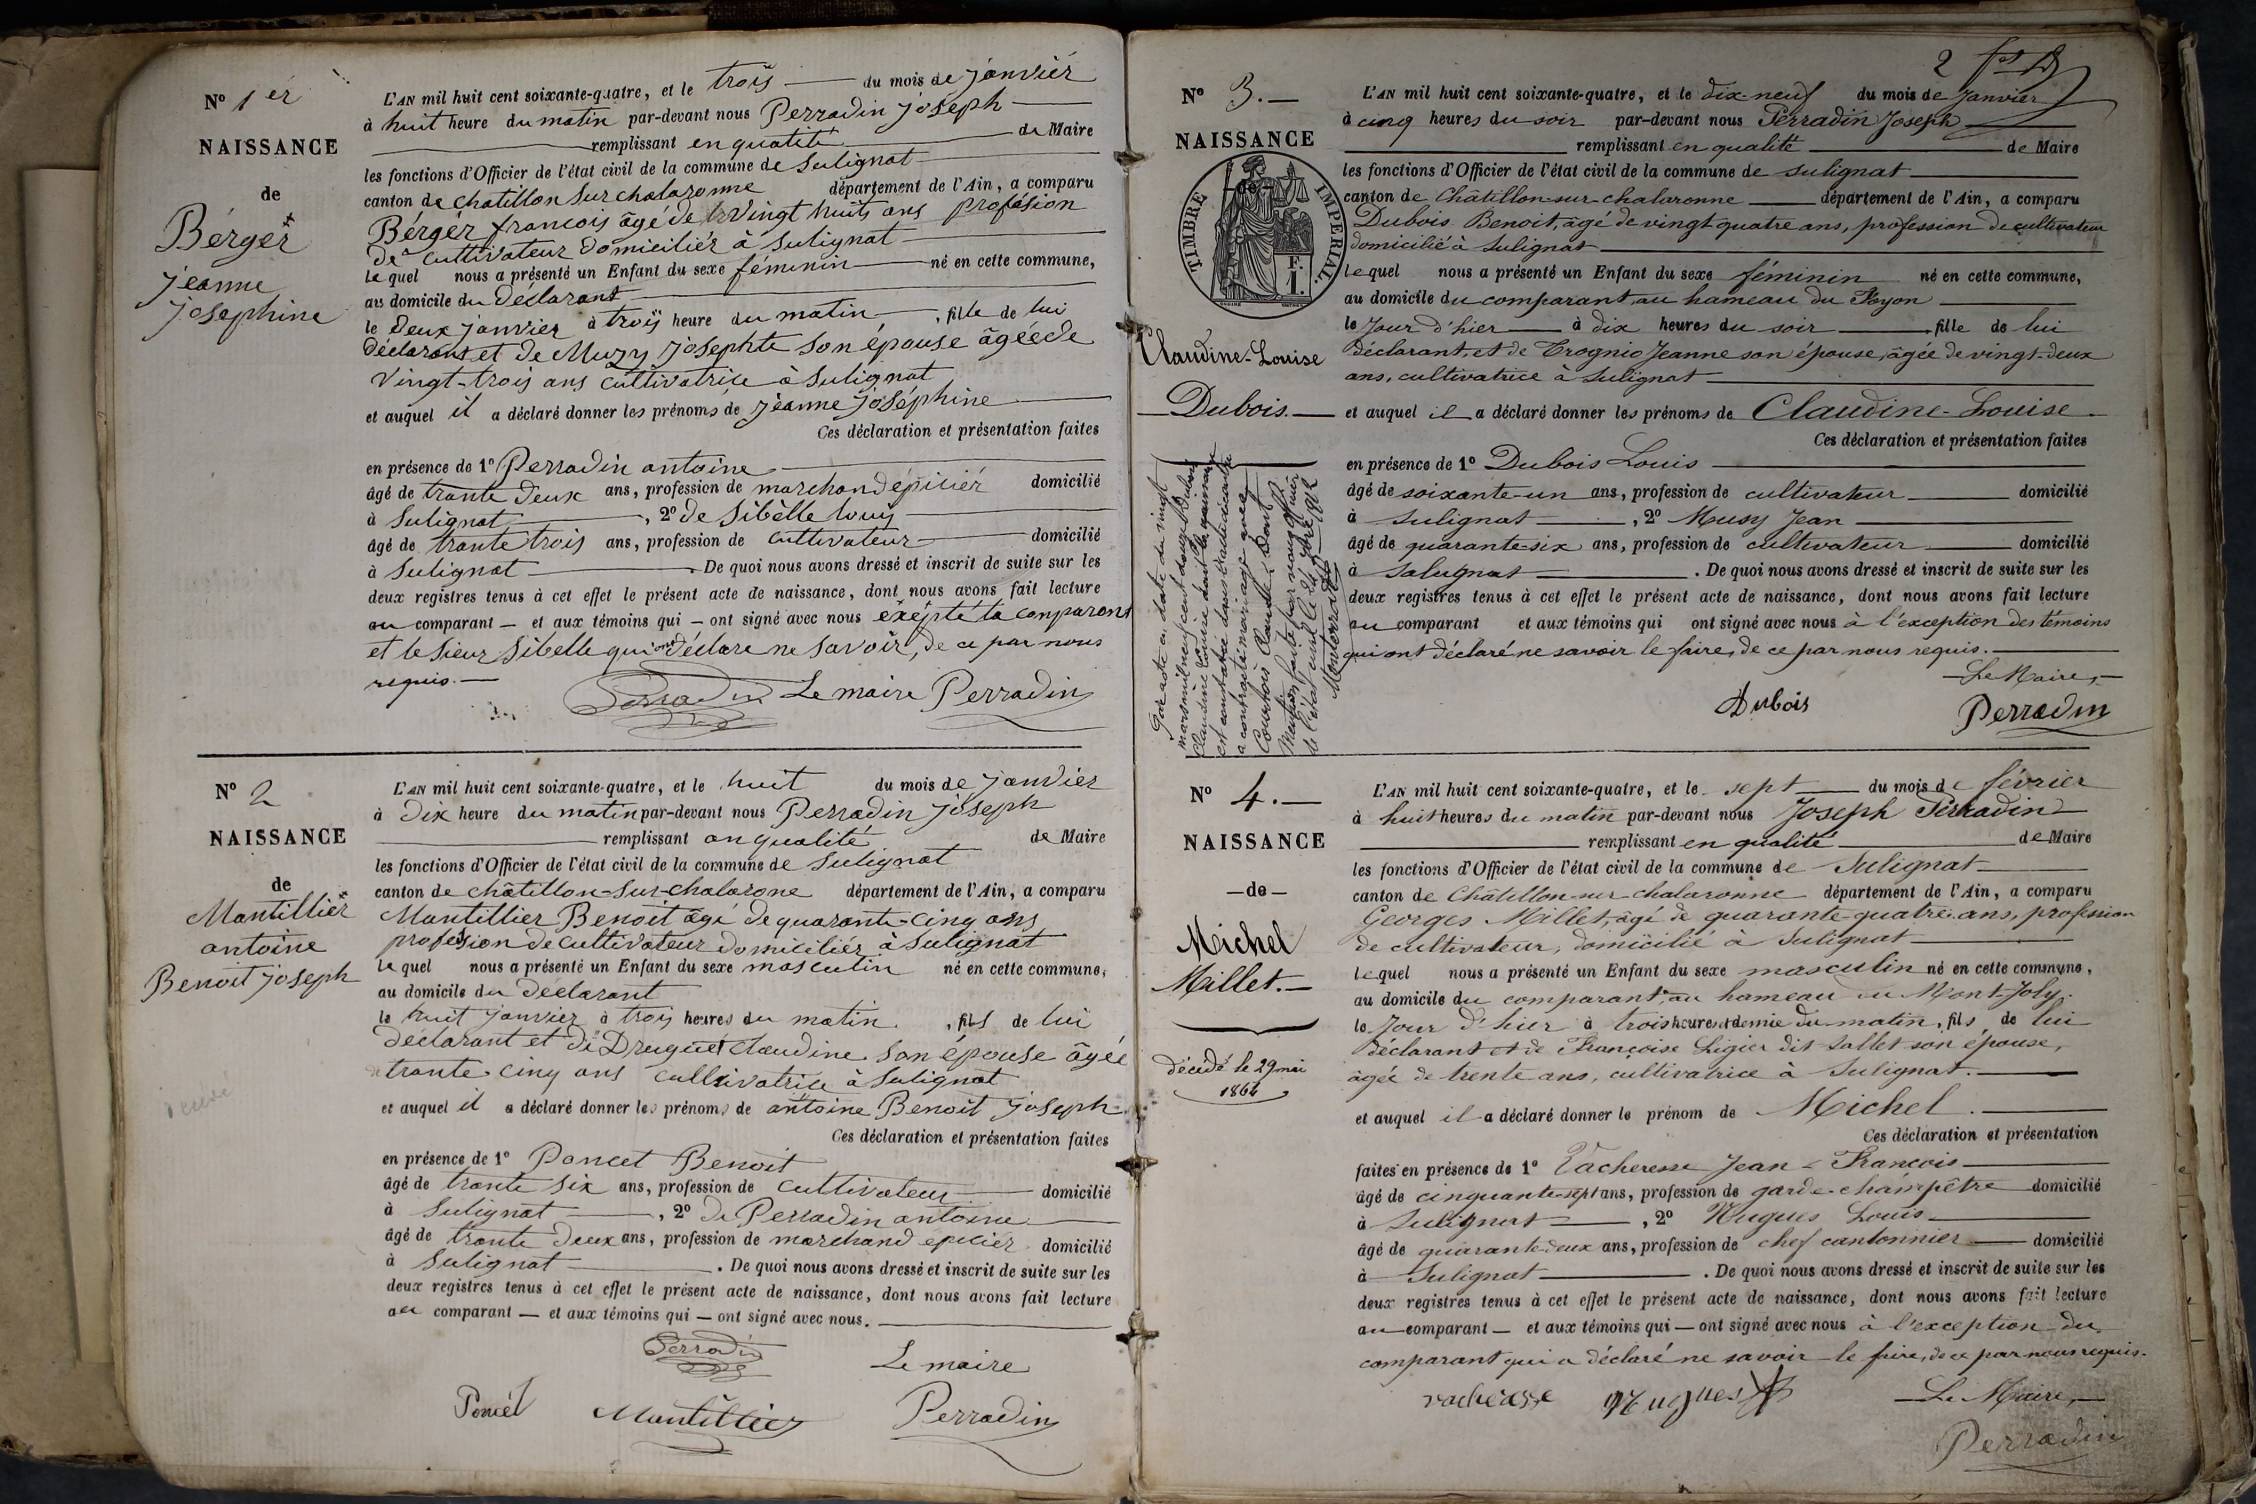 N° 1er
NAISSANCE
de
Bérger
jeanne
josephine
L'AN mil huit cent soixante-quatre, et le trois du mois de janvier
à huit heure du matin par-devant nous Perradin joseph
remplissant en qualité de Maire
les fonctions d'Officier de l'état civil de la commune de Sulignat
canton de chatillon sur chalaronne département de l'Ain, a comparu
Bérgér francois âgé de vingt huits ans profésion
de cultivateur domiciliér à Sulignat
lequel nous a présenté un Enfant du sexe féminin né en cette commune,
au domicile du déclarant
le deux janvier à trois heure du matin, fille de lui
déclarant et de Muzy josephte son épouse âgéede
vingt-trois ans cultivatrice à Sulignat
et auquel il a déclaré donner les prénoms de jéanne joséphine
Ces déclaration et présentation faites
en présence de 1° Perradin antoine
âgé de trante deux ans, profession de marchand épiciér domicilié
à Sulignat, 2° de Sibélle louis
âgé de trante trois ans, profession de cultivateur domicilié
à Sulignat. De quoi nous avons dressé et inscrit de suite sur les
deux registres tenus à cet effet le présent acte de naissance, dont nous avons fait lecture
au comparant — et aux témoins qui — ont signé avec nous exépté la conparant
et le sieur Sibelle qui ont déclare ne savoir, de ce par nous
requis.
Perradin Le maire Perradin
N° 2
NAISSANCE
de
Mantillier
antoine
Benoit joseph
L'AN mil huit cent soixante-quatre, et le huit du mois de janvier
à dix heure du matin par-devant nous Perradin joseph
remplissant an qualité de Maire
les fonctions d'Officier de l'état civil de la commune de Sulignat
canton de châtillon-sur-chalarone département de l'Ain, a comparu
Mantillier Benoit âgé de quarante-cinq ans
profession de cultivateur domiciliér à Sulignat
lequel nous a présenté un Enfant du sexe masculin né en cette commune,
au domicile du déclarant
le huit janvier à trois heures du matin, fils de lui
déclarant et de Druguet claudine son épouse âgée
de trante cinq ans cultivatrice à Sulignat
et auquel il a déclaré donner les prénoms de antoine Benoit joseph
Ces déclaration et présentation faites
en présence de 1° Poncet Benoit
âgé de trante six ans, profession de cultivateur domicilié
à Sulignat, 2° de Perradin antoine
âgé de trante deux ans, profession de marchand epiciér domicilié
à Sulignat. De quoi nous avons dressé et inscrit de suite sur les
deux registres tenus à cet effet le présent acte de naissance, dont nous avons fait lecture
au comparant — et aux témoins qui — ont signé avec nous.
Perradin Le maire
Poncét Mantillier Perradin
2
N° 3.
NAISSANCE
de
TIMBRE IMPERIAL.
F.
1.
Claudine-Louise
Dubois.
Par acte en date du vingt
mars mil neuf cent douze Dubois
Claudine Louise dont la naissance
est constatée dans l'acte ci-contre
a contracté mariage avec
Courtois Claude. Dont
Mention faite par nous officier
de l'état civil le
L'AN mil huit cent soixante-quatre, et le dix-neuf du mois de Janvier
à cinq heures du soir par-devant nous Perradin Joseph
remplissant en qualité de Maire
les fonctions d'Officier de l'état civil de la commune de sulignat
canton de Châtillon-sur-chalaronne département de l'Ain, a comparu
Dubois Benoit, âgé de vingt quatre ans, profession de cultivateur
domicilié à Sulignat
lequel nous a présenté un Enfant du sexe féminin né en cette commune,
au domicile du comparant au hameau du Payon
le Jour d'hier à dix heures du soir, fille de lui
déclarant, et de Trognio Jeanne son épouse, âgée de vingt-deux
ans, cultivatrice à Sulignat
et auquel il a déclaré donner les prénoms de Claudine-Louise
Ces déclaration et présentation faites
en présence de 1° Dubois Louis
âgé de soixante-un ans, profession de cultivateur domicilié
à Sulignat, 2° Musy Jean
âgé de quarante-six ans, profession de cultivateur domicilié
à Salugnat. De quoi nous avons dressé et inscrit de suite sur les
deux registres tenus à cet effet le présent acte de naissance, dont nous avons fait lecture
au comparant et aux témoins qui ont signé avec nous à l'exception des témoins
qui ont déclaré ne savoir le faire, de ce par nous requis.
Le Maire,
Dubois Perradin
N° 4.
NAISSANCE
—de—
Michel
Millet.
décédé le 29 mai
1864
L'AN mil huit cent soixante-quatre, et le sept du mois de février
à huit heures du matin par-devant nous Joseph Perradin
remplissant en qualité de Maire
les fonctions d'Officier de l'état civil de la commune de Sulignat
canton de Châtillon-sur-chalaronne département de l'Ain, a comparu
Georges Millet, âgé de quarante-quatre ans, profession
de cultivateur, domicilié à Sulignat
lequel nous a présenté un Enfant du sexe masculin né en cette commune,
au domicile du comparant, au hameau du Mont-Joly.
le Jour d'hier à trois heures et demie du matin, fils de lui
déclarant et de Françoise Ligier dit Sallet son épouse,
âgée de trente ans, cultivatrice à Sulignat.
et auquel il a déclaré donner le prénom de Michel.
Ces déclaration et présentation
faites en présence de 1° Vacheresse Jean-François
âgé de cinquante-sept ans, profession de garde-champêtre domicilié
à Sulignat, 2° Hugues Louis
âgé de quarante-deux ans, profession de chef cantonnier domicilié
à Sulignat. De quoi nous avons dressé et inscrit de suite sur les
deux registres tenus à cet effet le présent acte de naissance, dont nous avons fait lecture
au comparant — et aux témoins qui — ont signé avec nous à l'exception du
comparant qui a déclaré ne savoir le faire, de ce par nous requis.
vacheresse Hugues Le Maire,
Perradin